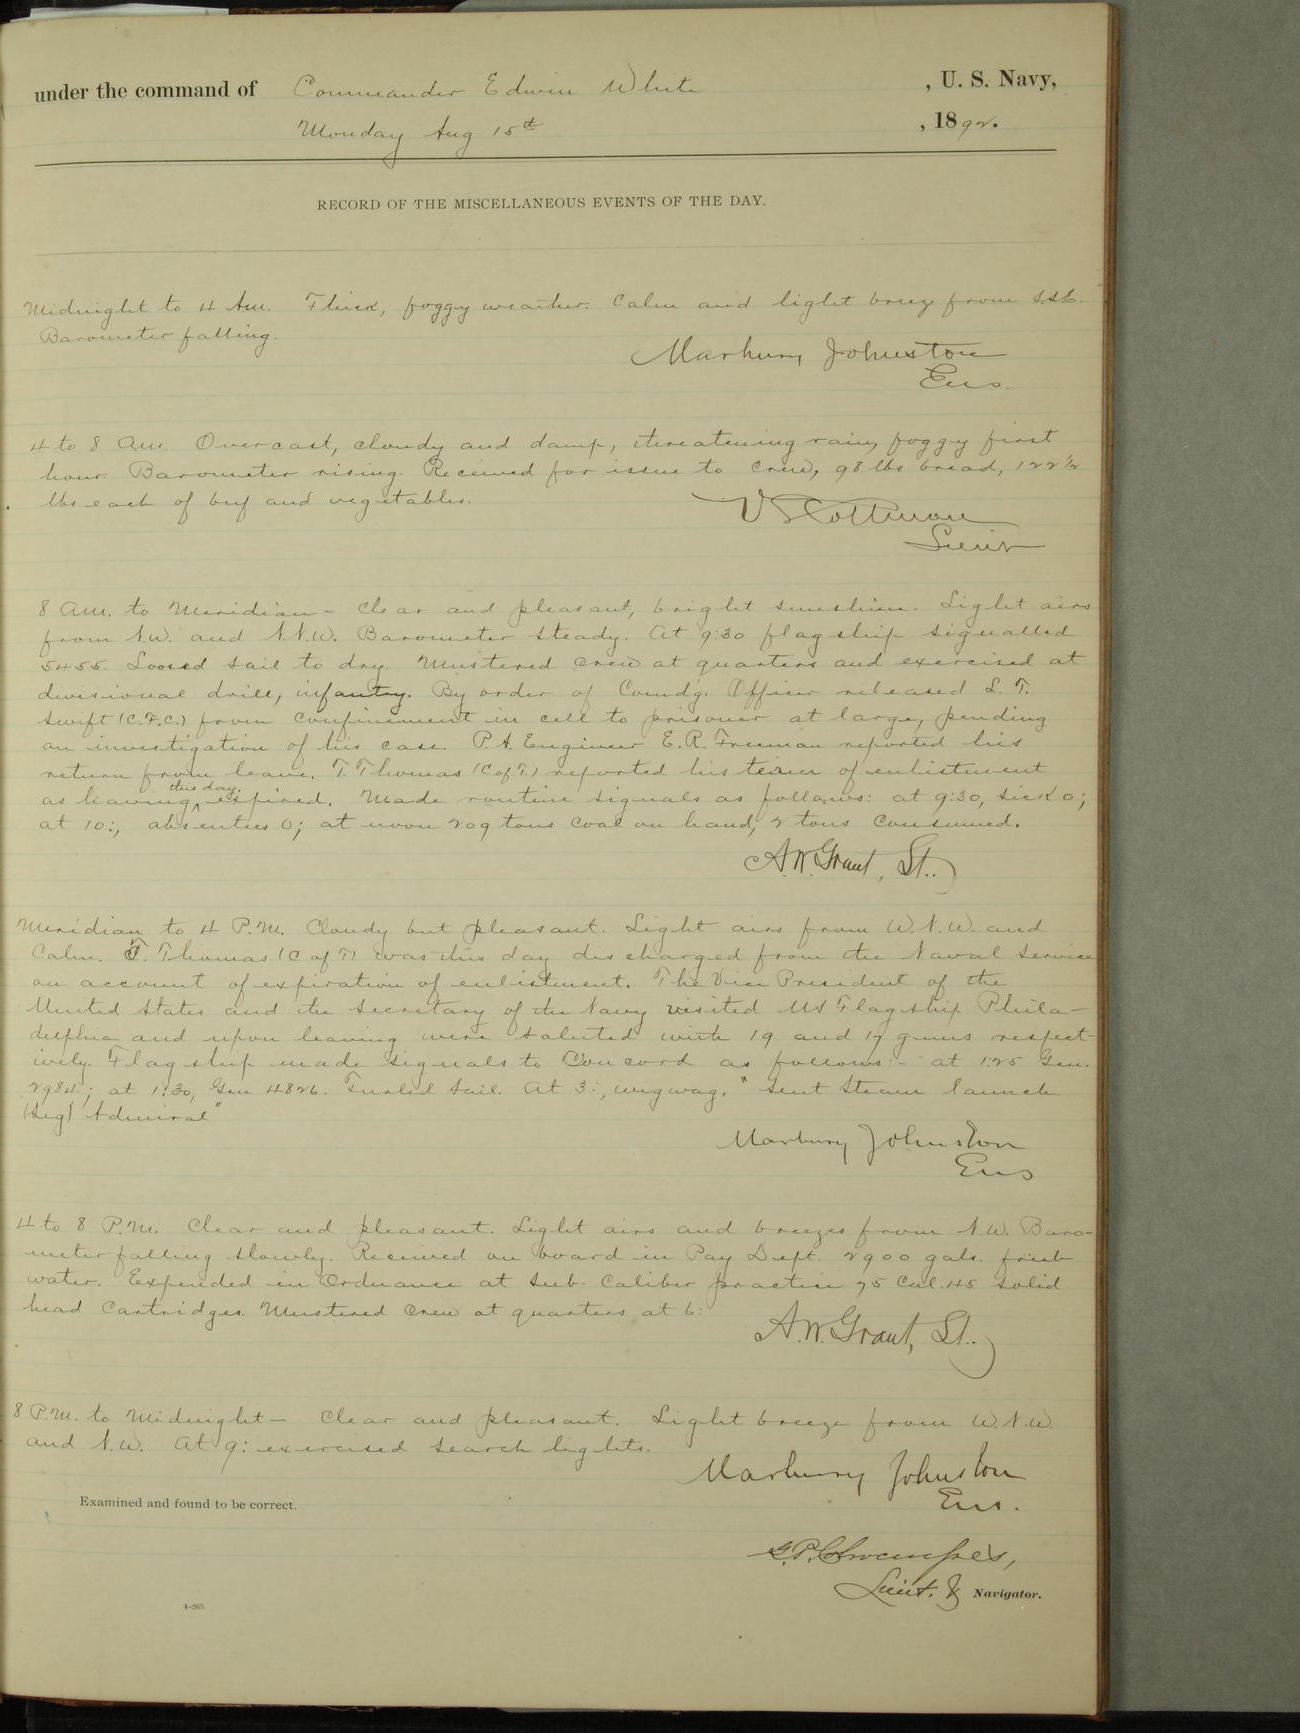 under the command of Commander Edwin White, U. S. Navy,
Monday Aug 15th, 1892.
RECORD OF THE MISCELLANEOUS EVENTS OF THE DAY.
Midnight to 4 Am. Thick, foggy weather. Calm and light breeze from S.S.E.
Barometer falling.
Marbury Johnston
Ens.
4 to 8 am. Overcast, cloudy and damp, threatening rain, foggy first
hour. Barometer rising. Received for issue to crew, 98 lbs bread, 122 1/2
lbs each of beef and vegetables.
V S Cottman
Lieut
8 am. to Meridian - Clear and pleasant, bright sunshine. Light airs
from N.W. and N.N.W. Barometer steady. At 9:30 flag ship signalled
5455. Loosed sail to dry. Mustered crew at quarters and exercised at
divisional drill, infantry. By order of Comdg. Officer released L. T.
Swift (C.F.C.) from confinement in cell to prisoner at large, pending
an investigation of his case. P.A. Engineer E.R. Freeman reported his
return from leave. T. Thomas (C of T.) reported his term of enlistment
as having this day expired. Made routine signals as follows: at 9:30, sick 0;
at 10:, absentees 0; at noon 209 tons coal on hand, 2 tons consumed.
A.W. Grant, Lt..
Meridian to 4 P.M. Cloudy but pleasant. Light airs from W.N.W. and
Calm. T. Thomas (C of T) was this day discharged from the Naval Service
on account of expiration of enlistment. The Vice President of the
United States and the Secretary of the Navy visited US Flagship Phila-
delphia and upon leaving were saluted with 19 and 17 guns respect-
ively. Flag ship made signals to Concord as follows:- at 1:25 Gen.
2984; at 1:30, Gen 4826. Furled sail. At 3:, wigwag. "Sent steam launch
(Sig) Admiral"
Marbury Johnston
Ens
4 to 8 P.M. Clear and pleasant. Light airs and breezes from N.W. Baro-
meter falling slowly. Received on board in Pay Dept. 2900 gals. fresh
water. Expended in Ordnance at sub-caliber practice 75 Cal. 45 solid
head cartridges. Mustered crew at quarters at 6:
A.W. Grant, Lt..
8 P.M. to Midnight- Clear and pleasant. Light breeze from W.N.W.
and N.W. At 9: exercised search lights.
Marbury Johnston
Ens.
Examined and found to be correct.
Lieut. & Navigator.
4-265